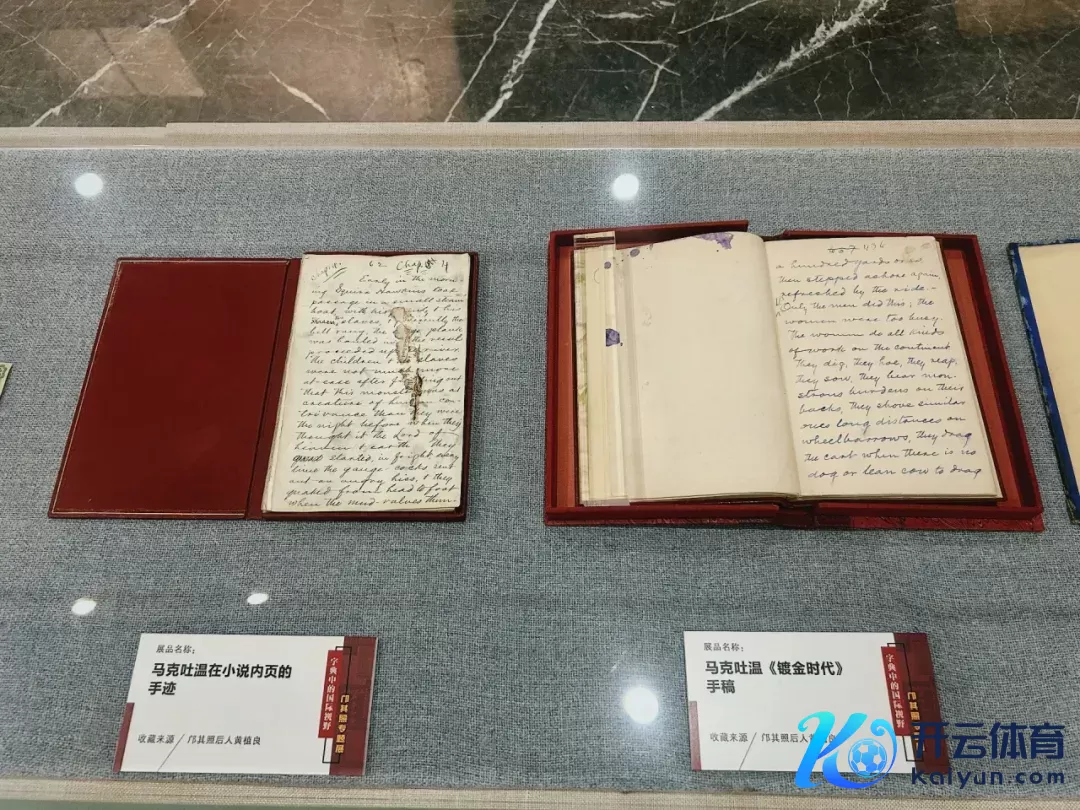 62 Chap. 4
Early in the morn-
ing Squire Hawkins took
passage in a small steam
boat, with his family & his
slaves, & presently the
bell rang, the plank
was hauled in the vessel
proceeded up the river.
the children & slaves
were not much more
at ease after finding out
that this monster was a
creature of human con-
trivance than they were
the night before when they
thought it the Lord of
heaven & earth. They
started, in fright, every
time the gauge-cocks sent
out an angry hiss, & they
quaked from head to foot
when the mud-valves thun-
434
a hundred yards or so,
then stepped ashore again,
refreshed by the ride.
Only the men did this; the
women were too busy.
The women do all kinds
of work on the continent
They dig, they hoe, they reap,
they sow, they bear mon-
strous burdens on their
backs, they shove similar
ones long distances on
wheelbarrows, they drag
the cart when there is no
dog or lean cow to drag
展品名称：
马克吐温在小说内页的
手迹
收藏来源／邝其照后人黄植良
字典中的国际视野
邝其照专题展
展品名称：
马克吐温《镀金时代》
手稿
收藏来源／邝其照后人黄植良
字典中的国际视野
邝其照
开云体育
kaiyun.com